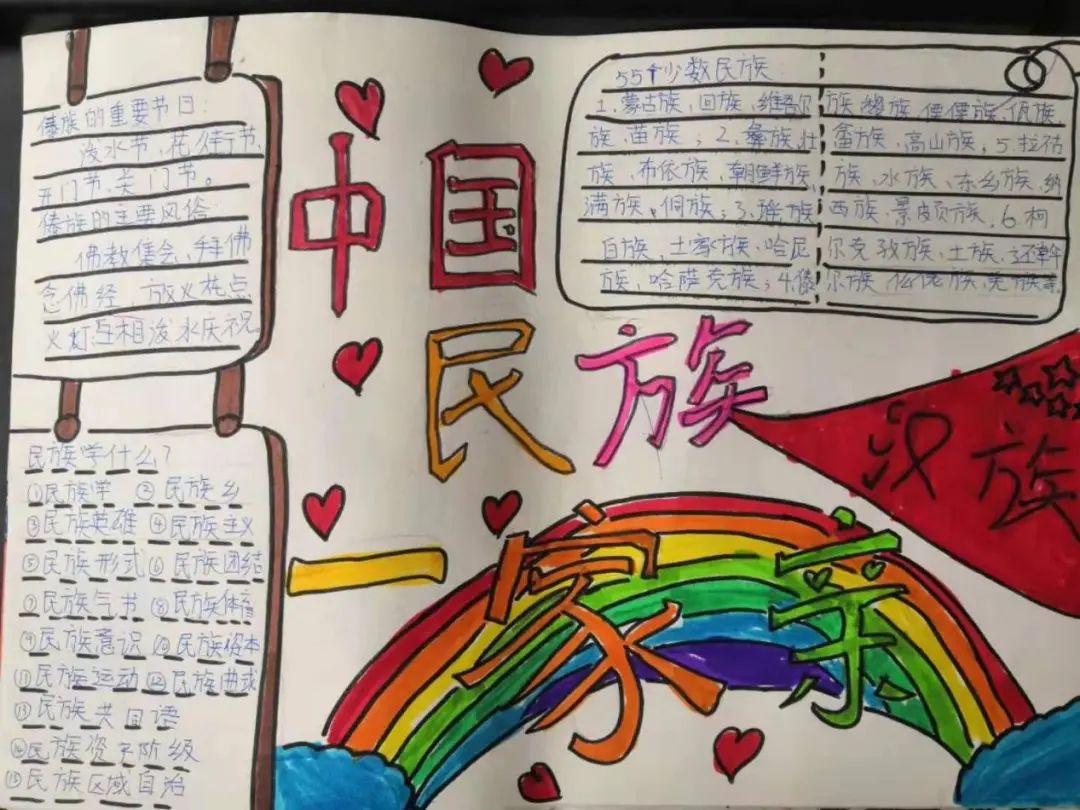 傣族的重要节日:
泼水节、花街节、
开门节、关门节。
傣族的主要风俗:
佛教集会、拜佛
念佛经、放火花点
火灯互相泼水庆祝。
民族学什么?
①民族学 ②民族乡
③民族英雄 ④民族主义
⑤民族形式⑥民族团结
⑦民族气节⑧民族体育
⑨民族意识⑩民族资本
⑪民族运动⑫民族曲式
⑬民族共同语
⑭民族资本阶级
⑮民族区域自治
中国
民族
一家亲
55个少数民族:
1.蒙古族、回族、维吾尔
族、苗族;2.彝族、壮
族、布依族、朝鲜族、
满族、侗族;3.瑶族
白族、土家族、哈尼
族、哈萨克族;4.傣
族、黎族、傈僳族、佤族
畲族、高山族;5.拉祜
族、水族、东乡族、纳
西族、景颇族、6.柯
尔克孜族、土族、达斡
尔族 仫佬族、羌族
汉族